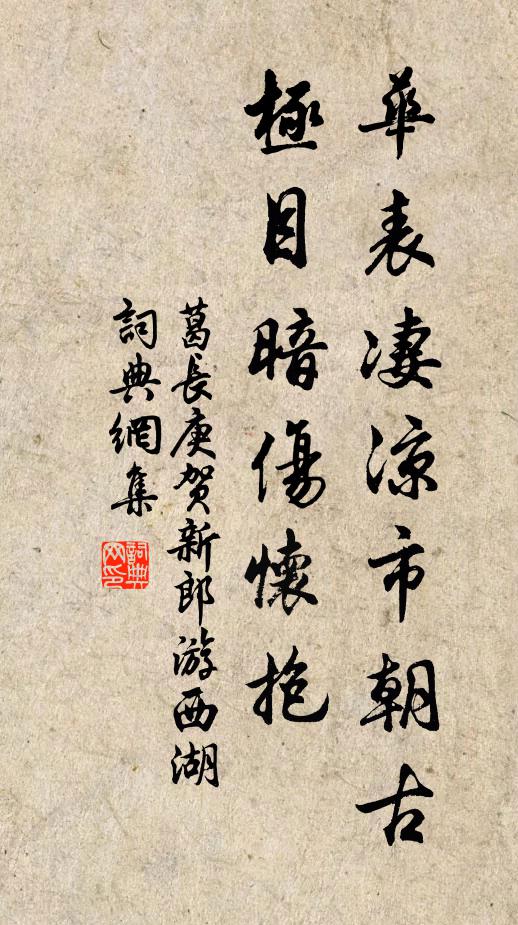 華表淒涼市朝古
極目暗傷懷抱
葛長庚賀新郎游西湖
詞典網集
詞典网印